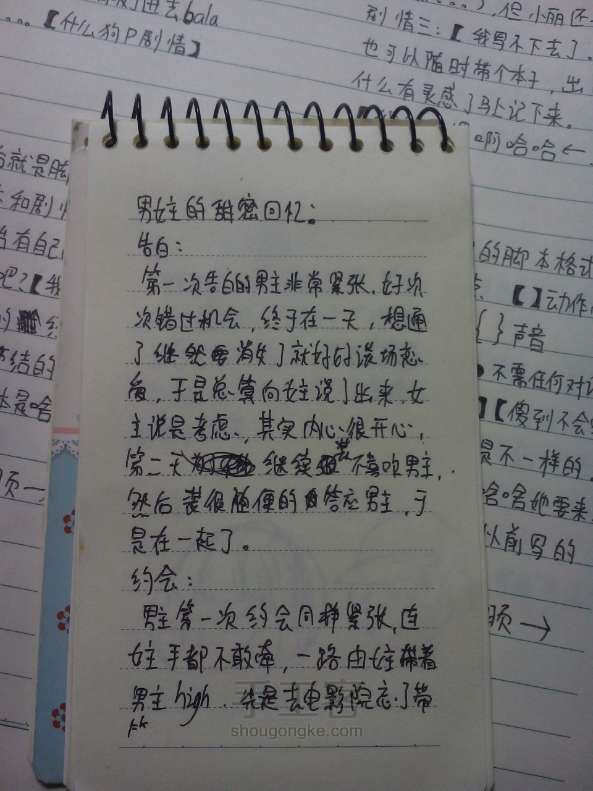 bala
...【什么狗P剧情】
剧情三:【我写不下去了.
也可以随时带个本子,出
什么有灵感了马上记下来。
啊哈哈←
男女主的甜密回忆:
告白:
第一次告白的男主非常紧张,好次
次错过机会,终于在一天,想通
了继然要消失了就好好谈场恋
爱,于是总算向女主说了出来,女
主说是考虑,其实内心很开心,
第二天 继续 装不喜欢男主,
然后装很随便的答应男主,于
是在一起了。
约会:
男主第一次约会同样紧张,连
女主手都不敢牵,一路由女主带着
男主high.先是去电影院忘了带
的脚本格式
【】动作
{}声音
不需任何对
【傻到不会
是不一样的.
哈哈她要来
以前写的
手工客
shougongke.com